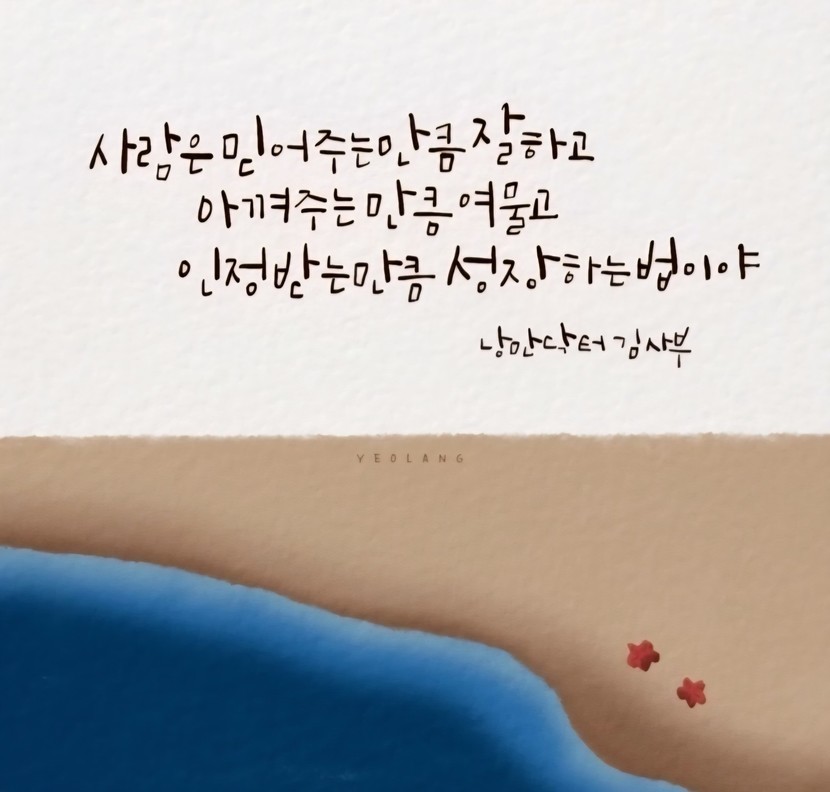 사람은 믿어주는만큼 잘하고
아껴주는 만큼 여물고
인정받는만큼 성장하는법이야
낭만닥터 김사부
YEOLANG